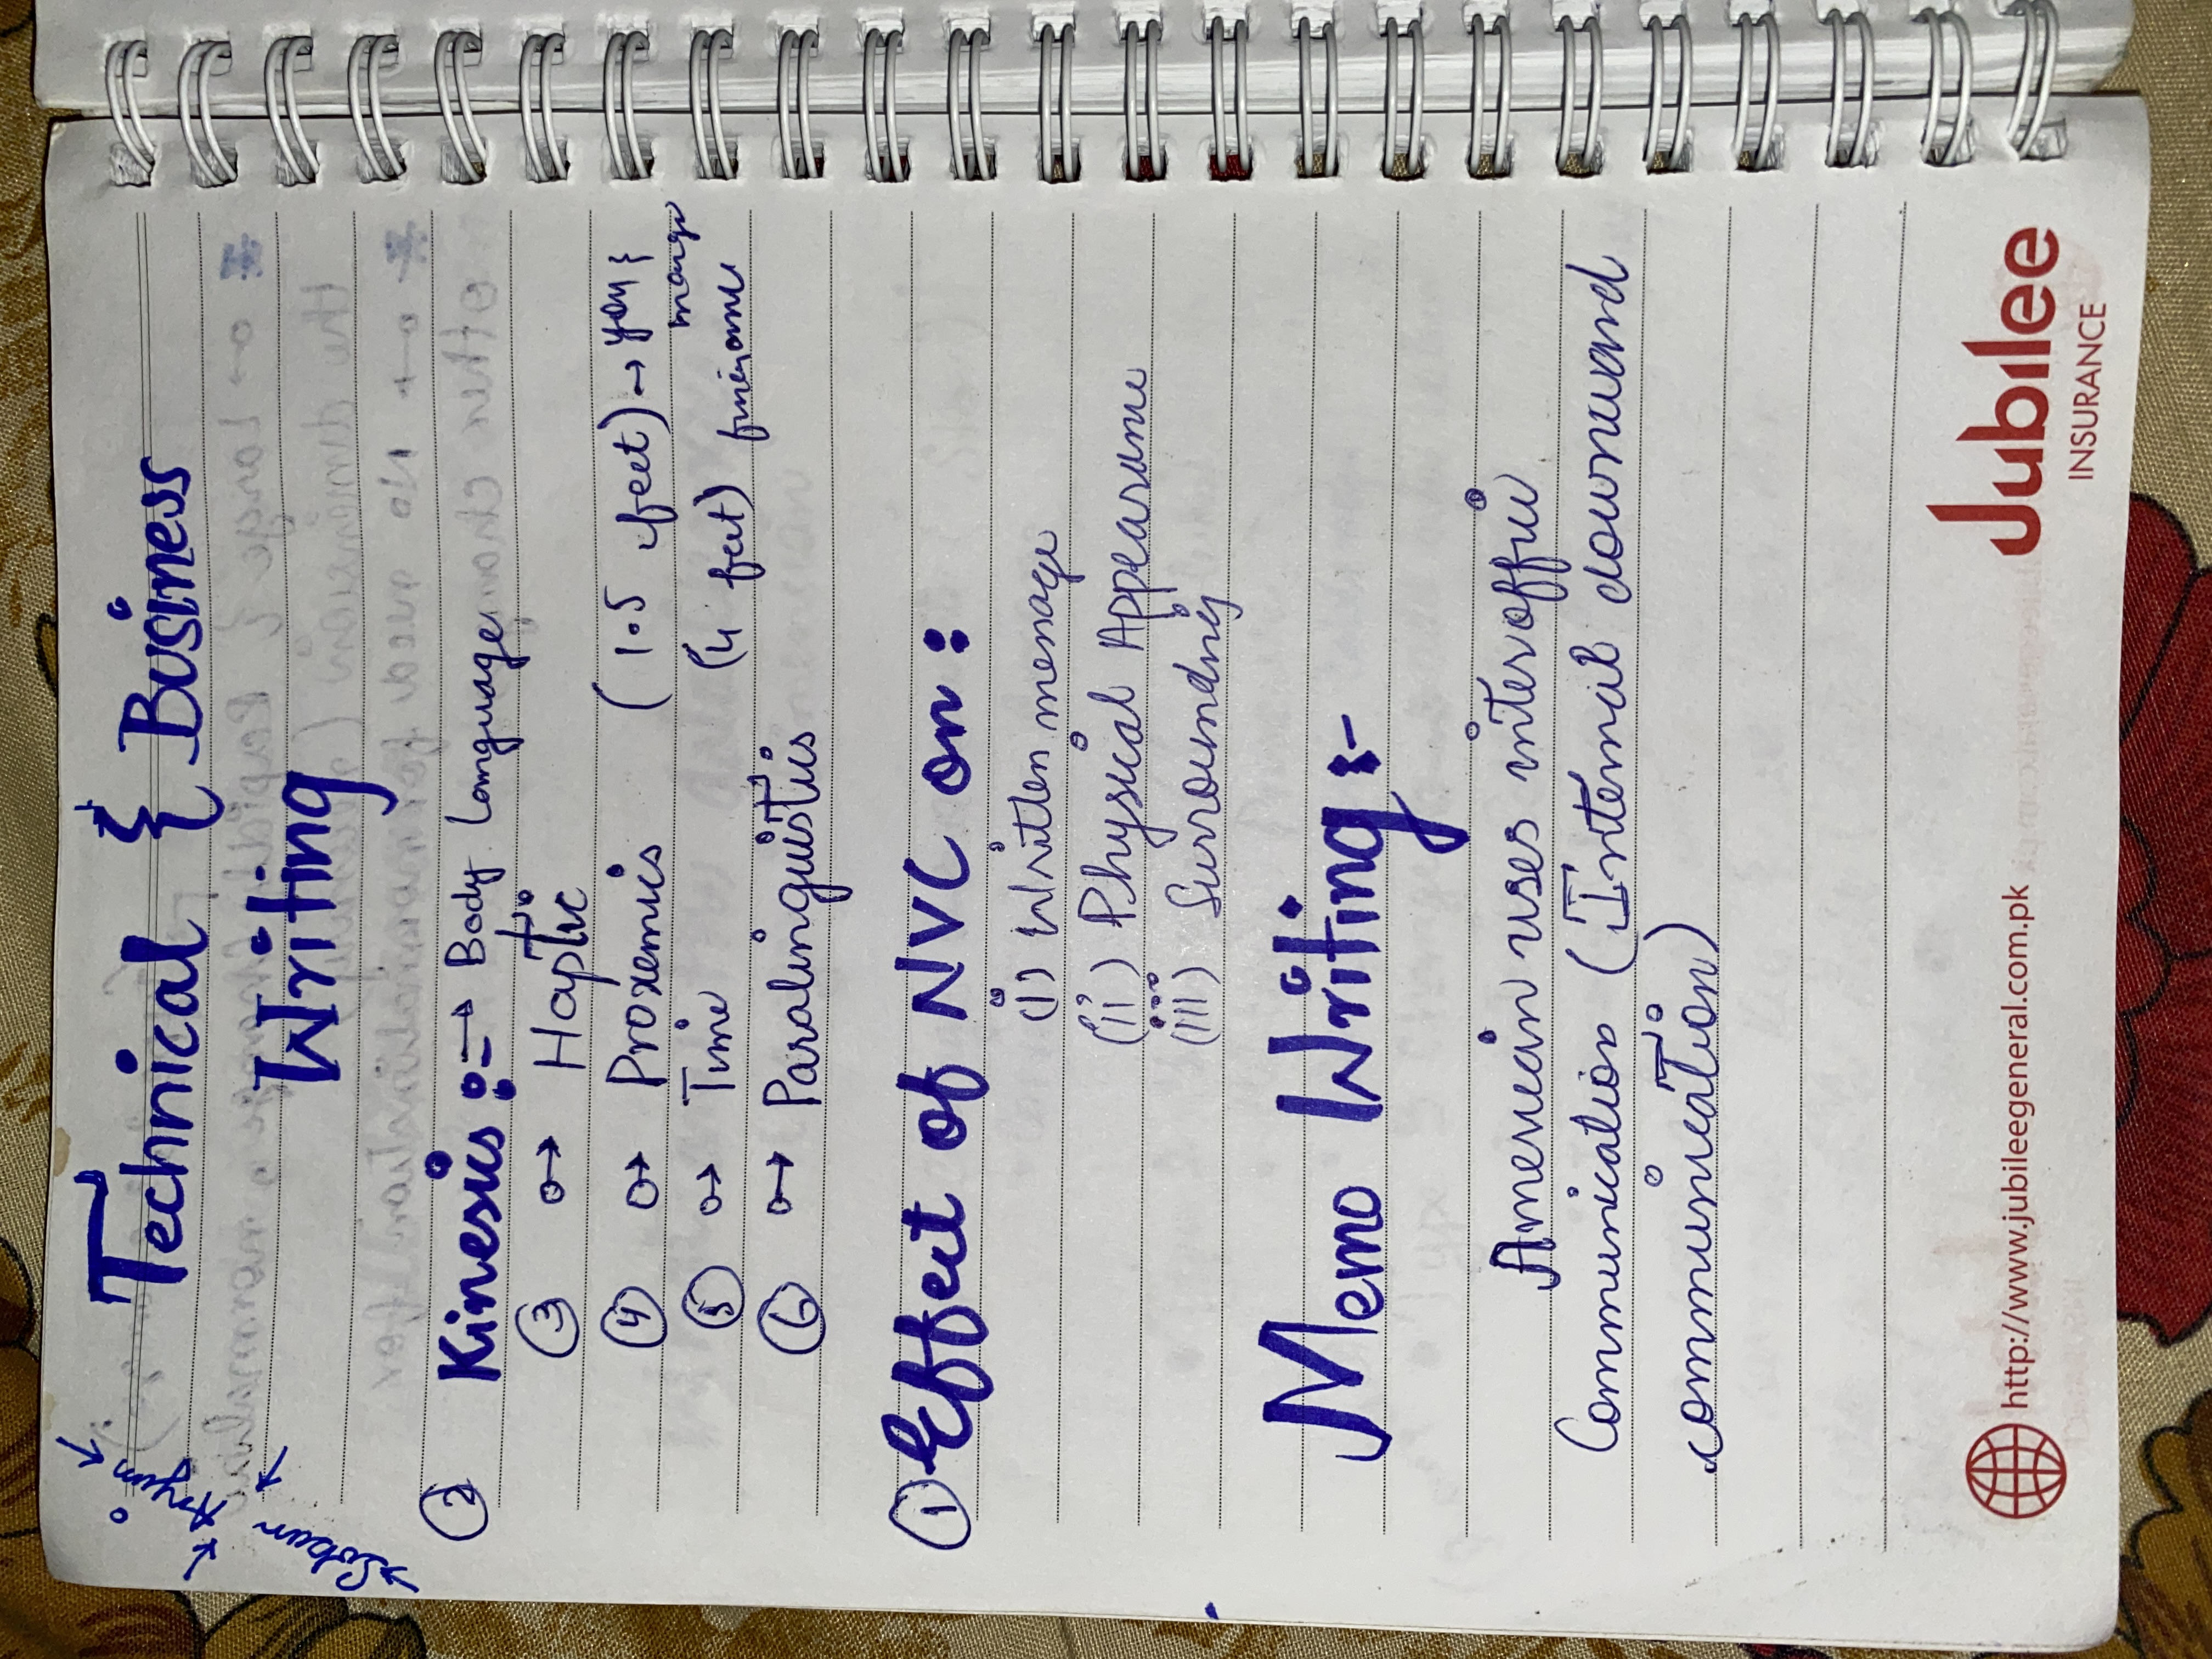 Anjum
Technical & Business
Writing
② Kinesics :- → Body Language
③ → Haptic
④ → Proxemics (1.5 feet) → you &
⑤ → Time (4 feet)
⑥ → Paralinguistics
① Effect of NVC on :
(i) Written message
(ii) Physical Appearance
(iii) Surrounding
Memo Writing :-
American uses interoffice
Communication (Internal downward
communication)
http://www.jubileegeneral.com.pk
Jubilee
INSURANCE